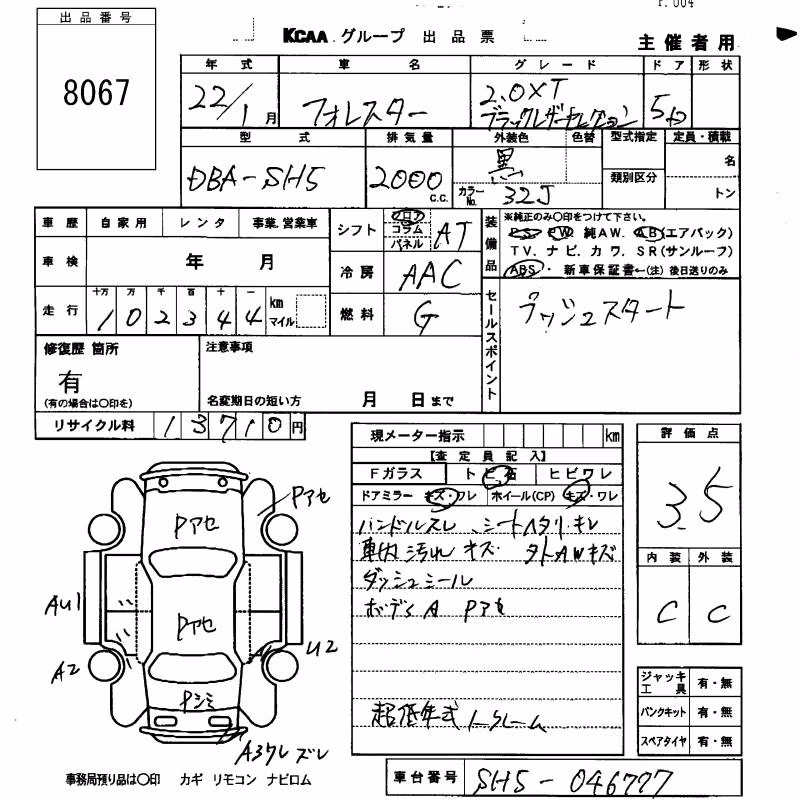 r.004
出品番号
8067
KCAA グループ 出品票
主催者用
年式 車名 グレード ドア 形状
22/1月 フォレスター 2.0XT
ブラックレザーセレクション 5D
型式 排気量 外装色 色替 型式指定 定員・積載
DBA-SH5 2000 c.c. 黒 名
カラーNo. 32J 類別区分 トン
車歴 自家用 レンタ 事業.営業車
車検 年 月
走行 十万 万 千 百 十 一
1 0 2 3 4 4 km マイル
シフト フロア コラム パネル AT
冷房 AAC
燃料 G
装備品 ※純正のみ○印をつけて下さい。
PS PW 純AW. AB(エアバック)
TV. ナビ. カワ. SR(サンルーフ)
ABS・ 新車保証書←(注) 後日送りのみ
セールスポイント プッシュスタート
修復歴 箇所
有
(有の場合は○印を)
注意事項
名変期日の短い方 月 日まで
リサイクル料 13710円
現メーター指示 km
【査定員記入】
Fガラス トビ石 ヒビワレ
ドアミラー キズ・ワレ ホイール(CP) キズ・ワレ
ハンドルスレ、シートヘタリ・キレ
車内汚れ キズ タトAWキズ
ダッシュシール
ボディA Pアセ
超低年式 ノークレーム
評価点
3.5
内装 外装
C C
ジャッキ
工具 有・無
パンクキット 有・無
スペアタイヤ 有・無
Pアセ
Pアセ
AU1
Pアセ
U2
A2
Pシミ
A3ワレ ズレ
事務局預り品は○印 カギ リモコン ナビロム
車台番号 SH5-046777